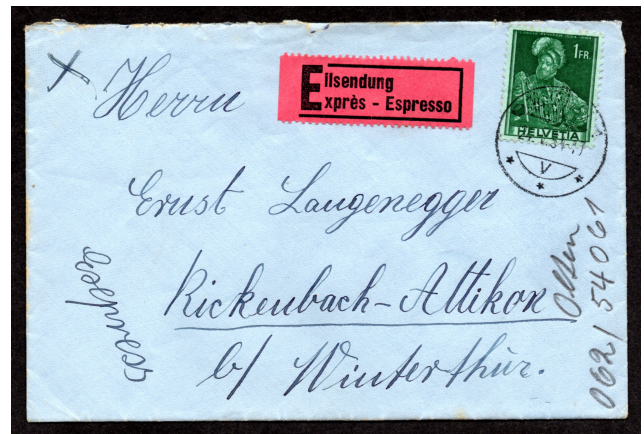 Herrn
Eilsendung
Exprès - Espresso
1 FR.
HELVETIA
V
Ernst Langenegger
Rickenbach-Attikon
b/ Winterthur.
express
Olten
062/54061